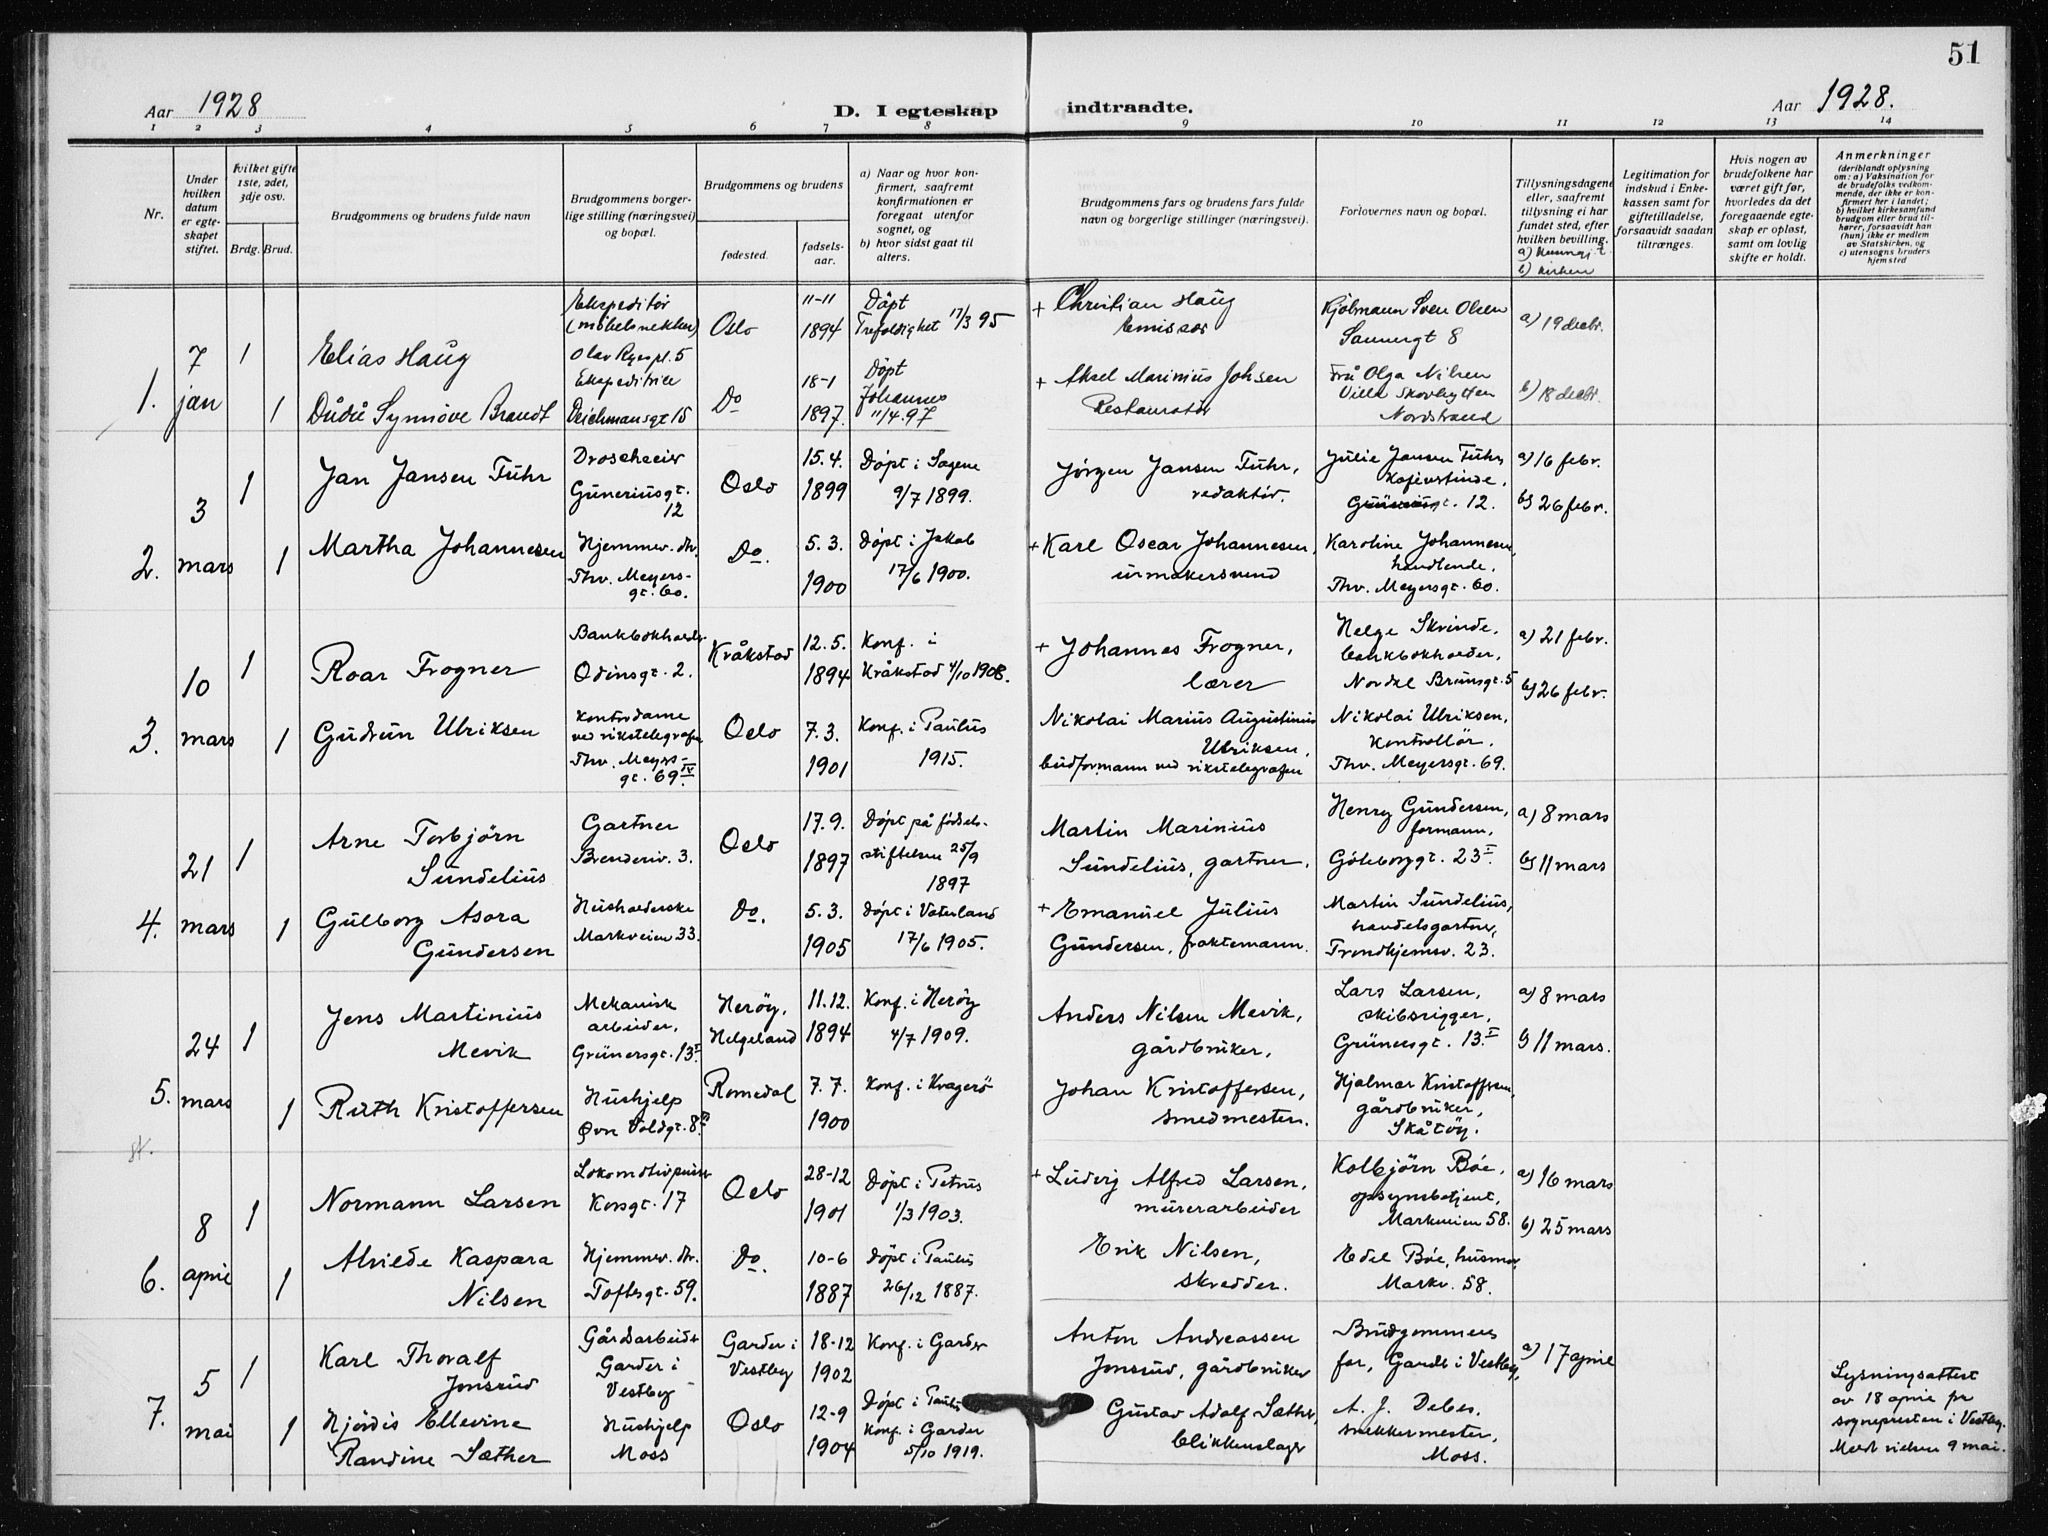 51
Aar 1928
D. I egteskap indtraadte.
Aar 1928.
1 2 3 4 5 6 7 8 9 10 11 12 13 14
Nr.
Under
hvilken
datum
er egte-
skapet
stiftet.
Hvilket gifte
1ste, 2det,
3dje osv.
Brdg. Brud.
Brudgommens og brudens fulde navn
Brudgommens borger-
lige stilling (næringsvei)
og bopæl.
Brudgommens og brudens
fødested.
fødsels-
aar.
a) Naar og hvor kon-
firmert, saafremt
konfirmationen er
foregaat utenfor
sognet, og
b) hvor sidst gaat til
alters.
Brudgommens fars og brudens fars fulde
navn og borgerlige stillinger (næringsvei).
Forlovernes navn og bopæl.
Tillysningsdagene
eller, saafremt
tillysning ei har
fundet sted, efter
hvilken bevilling.
b) kirken
Legitimation for
indskud i Enke-
kassen samt for
giftetilladelse,
forsaavidt saadan
tiltrænges.
Hvis nogen av
brudefolkene har
været gift før,
hvorledes da det
foregaaende egte-
skap er opløst,
samt om lovlig
skifte er holdt.
Anmerkninger
(deriblandt oplysning
om: a) Vaksination for
de brudefolks vedkom-
mende, der ikke er kon-
firmert her i landet;
b) hvilket kirkesamfund
brudgom eller brud til-
hører, forsaavidt han
(hun) ikke er medlem
av Statskirken, og
c) utensogns bruders
hjemsted
1. 7 jan
1
Elias Haug
Ekspeditør
(møbelsnekker)
Olav Ryespl. 5
Oslo
11-11
1894
Døpt
Trefoldighet 17/3 95
+ Christian Haug
Emissær
Sven Olsen
Sannergt 8
a) 19 decbr.
1
Dudu Synnöve Brandt
Ekspeditrice
Deichmansgt 15
Do
18-1
1897.
Døpt
Johannes
11/4.97
+ Aksel Marinius Johsen
Restauratør
Fru Olga Nilsen
Villa Skovhytten
Nordstrand
b) 18 decbr.
2. 3 mars
1
Jan Jansen Fuhr
Droscheeier
Guneriusgt.
12
Oslo
15.4.
1899
Døpt i Sagene
9/7 1899.
Jørgen Jansen Fuhr,
redaktör.
Julie Jansen Fuhr,
Guneriusgt. 12.
a) 16 febr.
b) 26 febr.
1
Martha Johannesen
Hjemmev. dtr.
Thv. Meyers-
gt. 60.
Do.
5.3.
1900
Døpt i Jakob
17/6 1900.
+ Karl Oscar Johannesen,
urmakersvend
Karoline Johannesen,
handlende,
Thv. Meyersgt. 60.
3. 10 mars
1
Roar Frogner
Bankbokholder
Odinsgt. 2.
Kråkstad
12.5.
1894
Konf. i
Kråkstad 4/10 1908.
+ Johannes Frogner,
lærer
Helge Skrinde,
bankbokholder,
Nordal Brunsgt. 5
a) 21 febr.
b) 26 febr.
1
Gudrun Ulriksen
Kontordame
ved rikstelegrafen
Thv. Meyers-
gt. 69 IV
Oslo
7.3.
1901
Konf. i Paulus
1915.
Nikolai Marius Augustinus
Ulriksen,
budformann ved rikstelegrafen
Nikolai Ulriksen,
Kontrollör.
Thv. Meyersgt. 69.
4. 21 mars
1
Arne Torbjörn
Sundelius
Gartner
Brenderiv. 3.
Oslo
17.9.
1897
Døpt på fødsels-
stiftelsen 25/9
1897
Martin Marinius
Sundelius, gartner.
Henry Gundersen,
formann,
Göteborggt. 23 I.
a) 8 mars
b) 11 mars
1
Gulborg Asora
Gundersen
Husholderske
Markveien 33.
Do.
5.3.
1905
Døpt i Vaterland
17/6 1905.
+ Emanuel Julius
Gundersen, fraktemann.
Martin Sundelius,
handelsgartner,
Trondhjemsv. 23.
5. 24 mars
1
Jens Martinius
Mevik
Mekanisk
arbeider,
Grünersgt. 13 I
Herøy,
Helgeland
11.12.
1894
Konf. i Herøy
4/7 1909.
Anders Nilsen Mevik,
gårdbruker,
Lars Larsen,
skibsrigger,
Grünersgt. 13. I
a) 8 mars
b) 11 mars.
1
Ruth Kristoffersen
Hushjelp
Øvre Voldgt. 8
Romedal
7.7.
1900
Konf. i Kragerö
Johan Kristoffersen,
smedmester.
Hjalmar Kristoffersen,
gårdbruker,
Skåtöy.
6. 8 april
1
Normann Larsen
Korsgt. 17
Oslo
28-12
1901
Døpt i Petrus
1/3 1903.
+ Ludvig Alfred Larsen,
murerarbeider
Kolbjörn Bøe,
opsynsbetjent,
Markveien 58.
a) 16 mars
b) 25 mars
1
Alvilde Kaspara
Nilsen
Hjemmev. dtr.
Toftesgt. 59.
Do.
10-6
1887
Døpt i Paulus
26/12 1887.
Erik Nilsen,
skredder.
Edel Bøe, husmor,
Markv. 58.
7. 5 mai
1
Karl Thoralf
Jonsrud
Gårdsarbeider
Garder i
Vestby
Garder i
Vestby
18-12
1902
Konf. i Garder
Anton Andreassen
Jonsrud, gårdbruker
Brudgommens
far, Garder i Vestby,
a) 17 april
Lysningsattest
av 18 april fr
sognepresten i Vestby.
9 mai.
1
Hjördis Ellevine
Randine Sæther
Hushjelp
Moss
Oslo
12-9
1904
Døpt i Paulus
Konf. i Garder
5/10 1919.
Gustav Adolf Sæther,
blikkenslager
A. J. Debes,
snekkermester,
Moss.